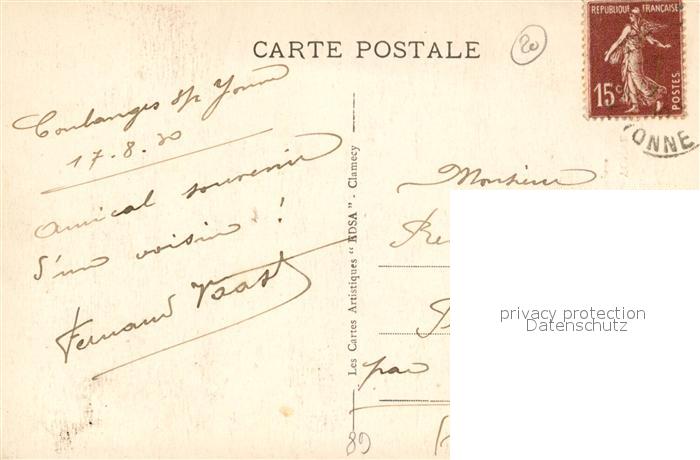 CARTE POSTALE
20
REPUBLIQUE FRANÇAISE
15c
POSTES
YONNE
Coulanges s/ Yonne
17.8.30
Amical souvenir
d'un voisin !
Fernand
Les Cartes Artistiques "EDSA" - Clamecy
Monsieur
par
89
privacy protection
Datenschutz